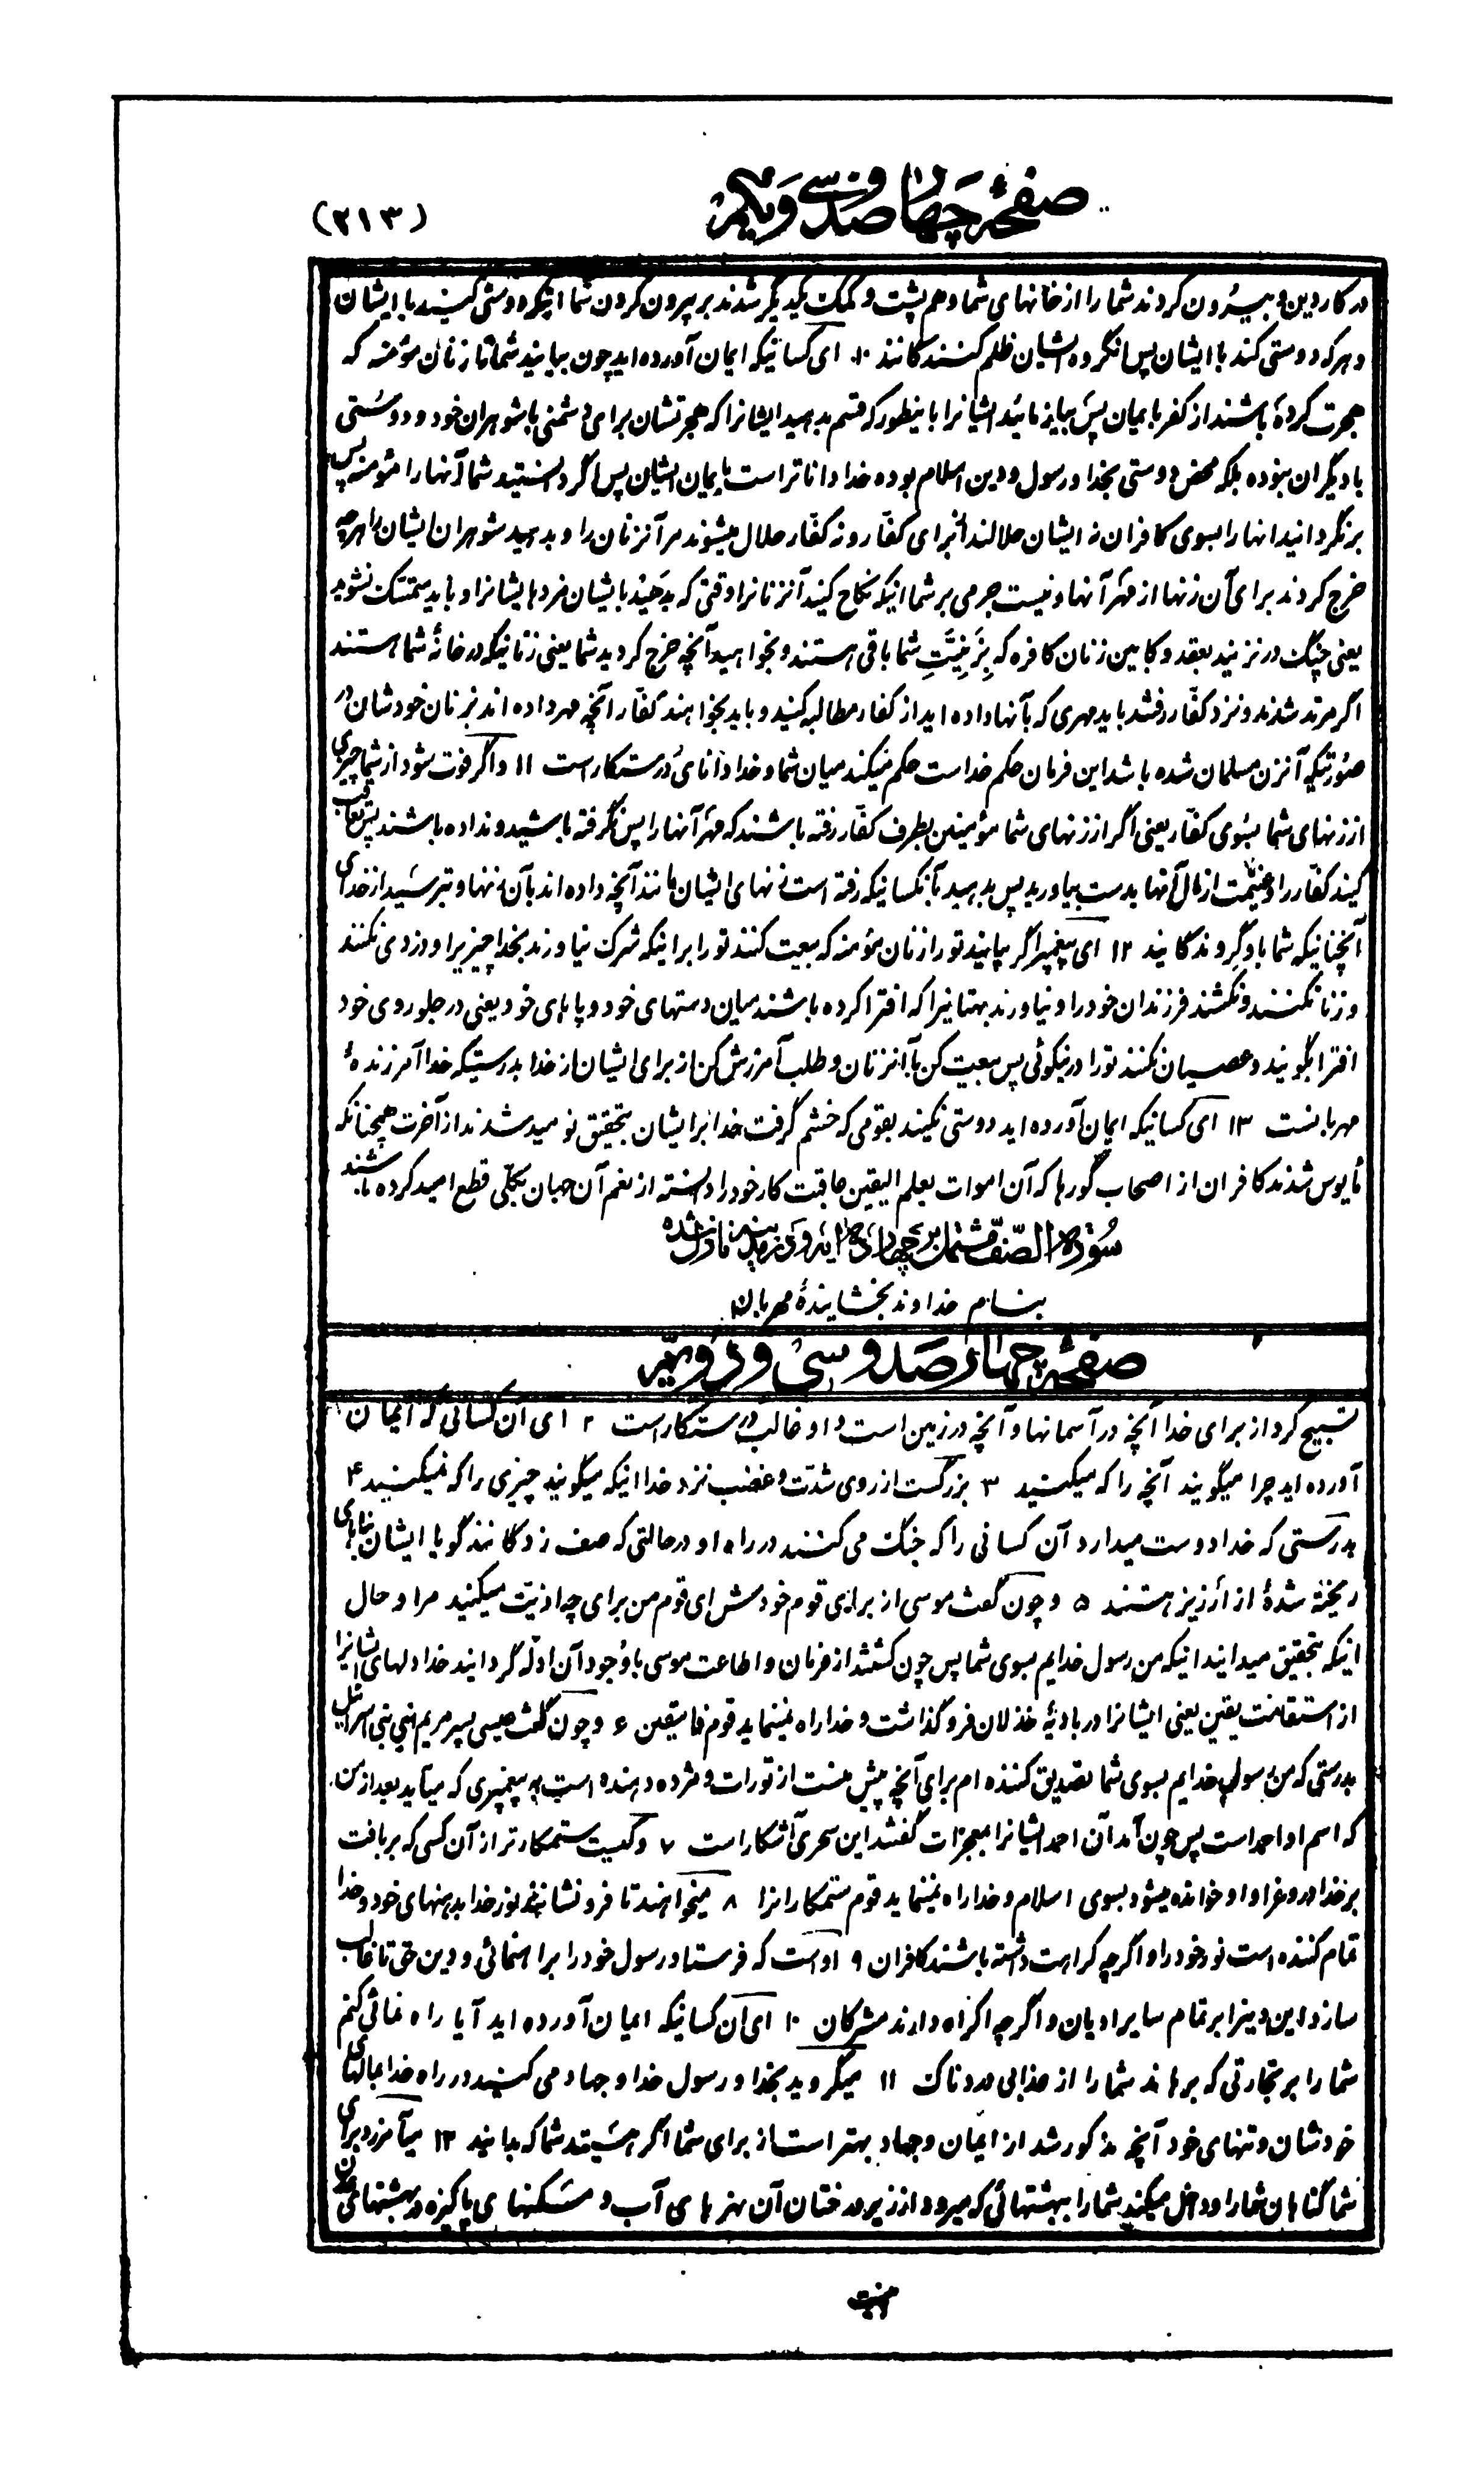 صفحهٔ چهارصد و سی و یکم
(۲۱۳)
در کار دین و بیرون کردند شما را از خانهای شما و هم پشت و کمک یکدیگر شدند بر بیرون کردن شما اینکه دوستی کنید با ایشان
و هر که دوستی کند با ایشان پس انگروه ایشان ظلم کنندگانند ۱۰ ای کسانیکه ایمان آورده اید چون بیایند شما را زنان مؤمنه که
هجرت کردهٔ باشند از کفر بایمان پس بیازمائید ایشانرا باینطور که قسم بدهید ایشانرا که هجرتشان برای دشمنی با شوهران خود و دوستی
با دیگران نبوده بلکه محض دوستی بخدا و رسول و دین اسلام بوده خدا داناتر است بایمان ایشان پس اگر دانستید شما آنها را مؤمنه پس
برنگردانید انها را بسوی کافران نه ایشان حلالند از برای کفّار و نه کفّار حلال میشوند مر آنزنان را و بدهید شوهران ایشان را هرچه
خرج کردند برای آن زنها از مهر آنها و نیست جرمی بر شما اینکه نکاح کنید آنزنانرا وقتی که بدهید بایشان مزدهایشانرا و باید متمسک نشوید
یعنی چنگ در نزنید بعقد و کابین زنان کافره که بزینیّت شما باقی هستند و بخواهید آنچه خرج کردید شما یعنی زنانیکه در خانهٔ شما هستند
اگر مرتد شدند و نزد کفّار رفتند باید مهری که بآنها داده اید از کفار مطالبه کنید و باید بخواهند کفّار آنچه مهر داده اند بزنان خودشان در
صورتیکه آنزن مسلمان شده باشد این فرمان حکم خداست حکم میکند میان شما و خدا دانای درستکار است ۱۱ و اگر فوت شود از شما چیزی
از زنهای شما بسوی کفّار یعنی اگر از زنهای شما مؤمنین بطرف کفّار رفته باشند که مهر آنها را پس نگرفته باشید و نداده باشند پس تعاقب
کنید کفّار را و غنیمت از مال آنها بدست بیاورید پس بدهید بآنکسانیکه رفته است زنهای ایشان مانند آنچه داده اند بآن زنها و بترسید از خدای
آنچنانیکه شما باو گروندگانید ۱۲ ای پیغمبر اگر بیایند تو را زنان مؤمنه که بیعت کنند تو را بر اینکه شرک نیاورند بخدا چیزیرا و دزدی نکنند
و زنا نکنند و نکشند فرزندان خود را و نیاورند بهتانیرا که افترا کرده باشند میان دستهای خود و پاهای خود یعنی در جلو روی خود
افترا بگویند و عصیان نکنند تو را در نیکوئی پس بیعت کن با آنزنان و طلب آمرزش کن از برای ایشان از خدا بدرستیکه خدا آمرزندهٔ
مهربانست ۱۳ ای کسانیکه ایمان آورده اید دوستی نکنید بقومی که خشم گرفت خدا بر ایشان بتحقیق نومید شدند از آخرت همچنانکه
مأیوس شدند کافران از اصحاب گورها که آن اموات بعلم الیقین عاقبت کار خود را دانسته از نعم آن جهان بکلّی قطع امید کرده باشند
سورة الصّف مشتمل بر چهارده آیه و در مدینه نازل شده
بنام خداوند بخشایندهٔ مهربان
صفحهٔ چهارصد و سی و دویّم
تسبیح کرد از برای خدا آنچه در آسمانها و آنچه در زمین است و او غالب درستکار است ۲ ای آن کسانی که ایمان
آورده اید چرا میگویند آنچه را که میکنید ۳ بزرگست از روی شدّت و غضب نزد خدا اینکه میگوئید چیزی را که نمیکنید ۴
بدرستی که خدا دوست میدارد آن کسانی را که جنگ می کنند در راه او در حالتی که صف زدگانند گویا ایشان بناهای
ریخته شدهٔ از ارزیز هستند ۵ و چون گفت موسی از برای قوم خودش ای قوم من برای چه اذیّت میکنید مرا و حال
اینکه بتحقیق میدانید اینکه من رسول خدایم بسوی شما پس چون گشتند از فرمان و اطاعت موسی با وجود آن ادلّه گردانید خدا دلهای ایشانرا
از استقامت یقین یعنی ایشانرا در بادیهٔ خذلان فرو گذاشت و خدا راه نمینماید قوم فاسقین ۶ و چون گفت عیسی پسر مریم ای بنی اسرائیل
بدرستی که من رسول خدایم بسوی شما تصدیق کننده ام برای آنچه پیش منست از تورات و مژده دهنده است به پیغمبری که میآید بعد از من
که اسم او احمد است پس چون آمد آن احمد ایشانرا بمعجزات گفتند این سحری آشکار است ۷ و کیست ستمکارتر از آن کسی که بربافت
بر خدا دروغرا و او خوانده میشود بسوی اسلام و خدا راه نمینماید قوم ستمکارانرا ۸ میخواهند تا فرو نشانند نور خدا بدهنهای خود و خدا
تمام کننده است نور خود را و اگر چه کراهت داشته باشند کافران ۹ اوست که فرستاد رسول خود را براهنمائی و دین حق تا غالب
سازد این دینرا بر تمام سایر ادیان و اگر چه اکراه دارند مشرکان ۱۰ ای آن کسانیکه ایمان آورده اید آیا راه نمائی کنم
شما را بر تجارتی که برهاند شما را از عذابی دردناک ۱۱ میگروید بخدا و رسول خدا و جهاد می کنید در راه خدا بمالهای
خودشان و تنهای خود آنچه مذکور شد از ایمان و جهاد بهتر است از برای شما اگر هستید شما که بدانید ۱۲ میآمرزد برای
شما گناهان شما را و داخل میکند شما را ببهشتهائی که میرود از زیر درختان آن نهرهای آب و مسکنهای پاکیزه در بهشتهای عدن